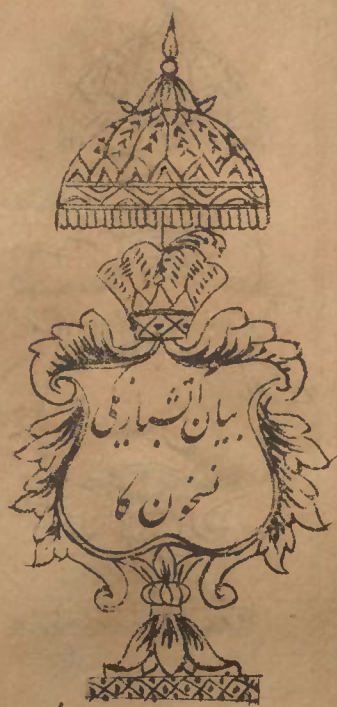 بیان آتشبازیکی
نسخون کا